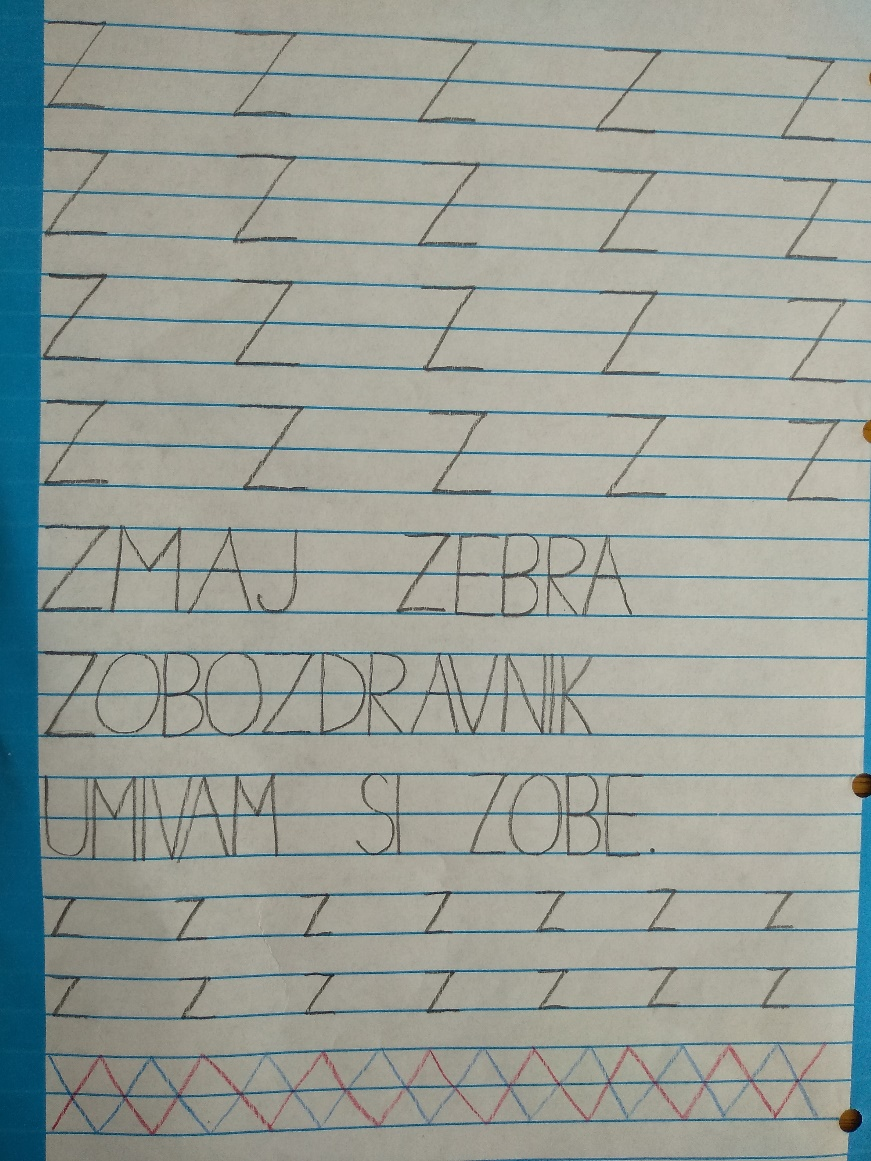 Z Z Z Z Z
Z Z Z Z Z
Z Z Z Z Z
Z Z Z Z Z
ZMAJ ZEBRA
ZOBOZDRAVNIK
UMIVAM SI ZOBE.
z z z z z z z
z z z z z z z